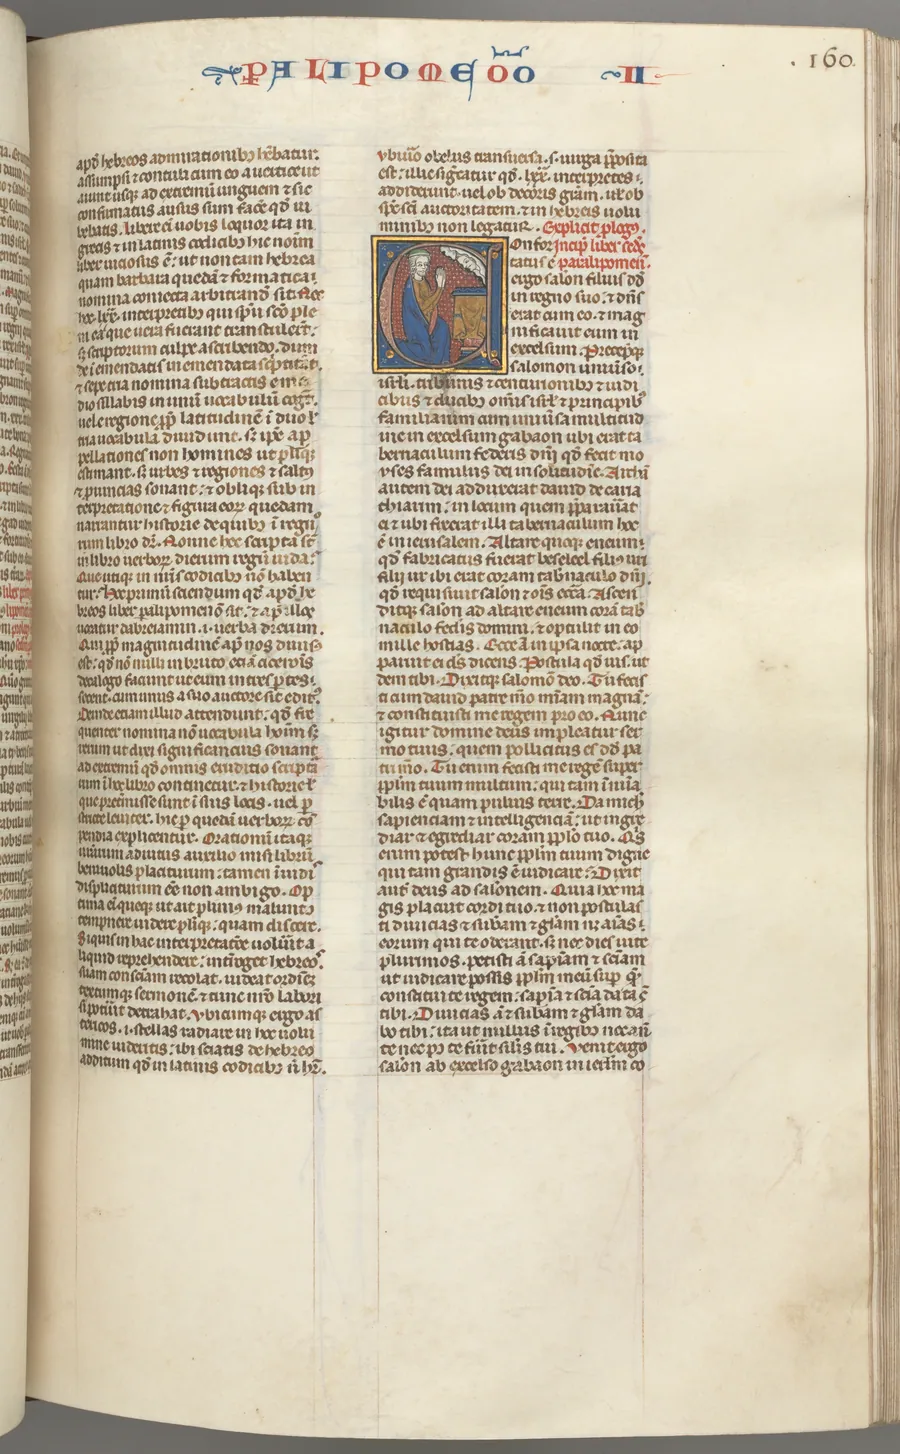 PALIPOMEÕO II
.160.
apd hebreos admirationibꝫ hr̃batur.
assumpsi ⁊ contuli cum eo a uertice ut
aiunt usqꝫ ad extremũ unguem ⁊ sic
confirmatus ausus sum facẽ qd̾ iu
bebatis. libere eĩ uobis loquor ita in
grecis ⁊ in latinis codicibꝫ hic noĩm
liber uiciosus ẽ: ut non tam hebrea
quam barbara quedã ⁊ sormatica
nomina coniecta arbitrand̾ sit. Nec
hoc. lxx. interpretibꝫ qui spũ scõ ple
ni ea que uera fuerant transtulerũt:
sꝫ scriptorum culpe ascribendũ. dum
de iemendatis inemendata sc̾ptitãt.
⁊ sepe tria nomina subtractis e me
dio sillabis in unũ uocabulũ cogũt.
uel e regione ꝓp̃ latitudinẽ ĩ duo ul̾
tria uocabula diuidunt. sꝫ ip̃e ap
pellationes non homines ut pl̾iqꝫ
estimant. sꝫ urbes ⁊ regiones ⁊ saltus
⁊ prouincias sonant: ⁊ obliqꝫ sub in
terpretatione ⁊ figura eoꝝ quedam
narrantur historie de quibꝫ ĩ regũ
rum libro dr̃. Nonne hec scripta st̃
in libro uerboꝝ dierum regũ iuda:
Que utiqꝫ in nr̃is codicibꝫ nõ haben
tur. Hoc primũ sciendum qd̾ apd̾ he
breos liber palipomenõ sit: ⁊ ap̃ illos
uocatur dabreiamin. i. uerba dierum.
Qui ꝓp̃ magnitudinẽ ap̃ nos diuisꝰ
est: qd̾ nõ nulli in bruto etiã ciceroĩs
dialogo faciunt ut eum in tres ꝑtes
secent. cum unus a suo auctore sit editꝰ.
Deinde etiam illud attendunt: qd̾ fre
quenter nomina nõ uocabula hoĩm sꝫ
rerum ut dixi significancius sonant.
ad extremũ qd̾ omnis eruditio scripta
rum ĩ hoc libro continetur. ⁊ historie ul̾
que pretmisse sunt ĩ suis locis. uel ꝑ
stricte leuiter. hic ꝑ quedã uerboꝝ cõ
pendia explicentur. Orationum itaqꝫ
uestrarum adiutus auxilio misi librũ
beniuolis placiturum: tamen ĩuidis
displiciturum eẽ non ambigo. Op
tima eĩ queqꝫ ut ait plinius malunt
tempnere uidere pl̾iqꝫ: quam discere.
Si quis in hac interpretatõe uolũit a
liquid reprehendere: interroget hebreos.
suam consciam recolat. uideat ordinẽ
textumqꝫ sermonẽ ⁊ tunc nr̃o labori
si potũit detrahat. Vbicumqꝫ ergo as
tericos. i. stellas radiare in hoc uolu
mine uideritis: ibi sciatis de hebreo
additum qd̾ in latinis codicibꝫ ñ hr̃.
Vbi uõ obelus transuersa. s. uirga p̃posita
est: illic sigñcatur qd̾. lxx. interpretes:
addiderint. uel ob decoris grãm. ul̾ ob
sp̃s sc̃i auctoritatem. ⁊ in hebreis uolu
minibꝫ non legatur. Explicit ꝓlog̾.
Confor Incip̃ liber scd̾s
tatus ẽ paralipomeñ.
ergo salõn filius dd̾
in regno suo: ⁊ dñs
erat cum eo. ⁊ mag
nificauit eum in
excelsum. Precepitqꝫ
salomon uniũso
isrl̾i. tribunis ⁊ centurionibꝫ ⁊ iudi
cibus ⁊ ducibꝫ om̃is isrl̾ ⁊ principibꝰ
familiarum cum uniũsa multitud
ine in excelsum gabaon ubi erat ta
bernaculum federis dñi qd̾ fecit mo
yses famulus dei in solitudĩe. Archã
autem dei adduxerat dauid de caria
thiarim: in locum quem p̃parauãt
ei ⁊ ubi fixerat illi tabernaculum hoc
ẽ in ierusalem. Altare quoqꝫ eneum:
qd̾ fabricatus fuerat beseleel filiꝰ uri
filii ur ibi erat coram tab̃naculo dñi.
qd̾ requisiuit salõn ⁊ oĩs eccã. Ascen
ditqꝫ salõn ad altare eneum corã tab̃
naculo fed̾is domini. ⁊ optulit in eo
mille hostias. Ecce ã in ipsa nocte. ap
paruit ei dẽ dicens. Postula qd̾ uis. ut
dem tibi. Dixitqꝫ salomõ deo. Tu fecis
ti cum dauid patre mõ mĩam magnã:
⁊ constituisti me regem pro eo. Nunc
igitur domine deus impleatur ser
mo tuus: quem pollicitus es dd̾ pa
tri mõ. Tu enim fecisti me regẽ super
ppl̾m tuum multum: qui tam ĩnũia
bilis ẽ quam puluis terre. Da mich
sapienciam ⁊ intelligenciã: ut ingre
diar ⁊ egrediar coram ppl̾o tuo. Qis
enim potest hunc ppl̾m tuum digne
qui tam grandis ẽ iudicare: Dixit
aut̃ deus ad salonem. Quia hoc ma
gis placuit cordi tuo. ⁊ non postulas
ti diuicias ⁊ subãm ⁊ glãm neqꝫ aĩas:
eorum qui te oderant. sꝫ nec dies uite
plurimos. petisti ã sapĩam ⁊ scĩam
ut iudicare possis ppl̾m meũ sup qm̃
constitui te regem: sapĩa ⁊ scĩa data ẽ
tibi. Diuicias ã ⁊ subãm ⁊ glãm da
bo tibi: ita ut nullus ĩ regibꝫ nec añ
te nec pꝰ te fũit sil̾is tui. Venit ergo
salõn ab excelso gabaon in ierl̾m co